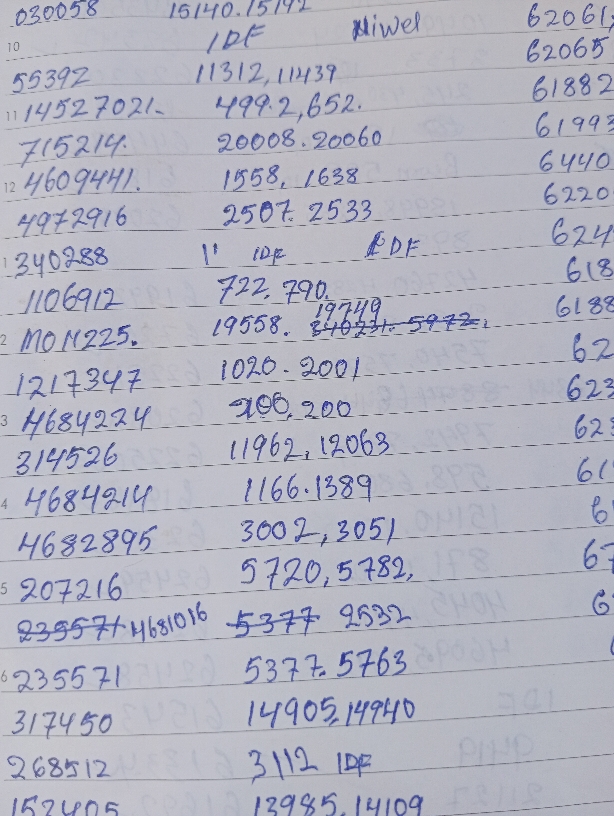 030058 15140.15192 62061
10 IDF Niwel
55392 11312, 11439 62065
11 14527021. 499.2, 652. 61882
715214. 20008.20060 61993
12 4609441. 1558, 1638 6440
4972916 2507. 2533 6220
1 340288 11 IDF IDF 624
1106912 722. 790. 618
19749
2 MON225. 19558. 6188
1217347 1020. 2001 62
3 4684224 200 623
314526 11962, 12063 623
4 4684214 1166.1389 61
4682895 3002, 3051 6
5 207216 5720, 5782, 67
235571 4681016 5377 2532 6
6 235571 5377. 5763
317450 14905, 14940
268512 3112 IDF
152405 13985, 14109